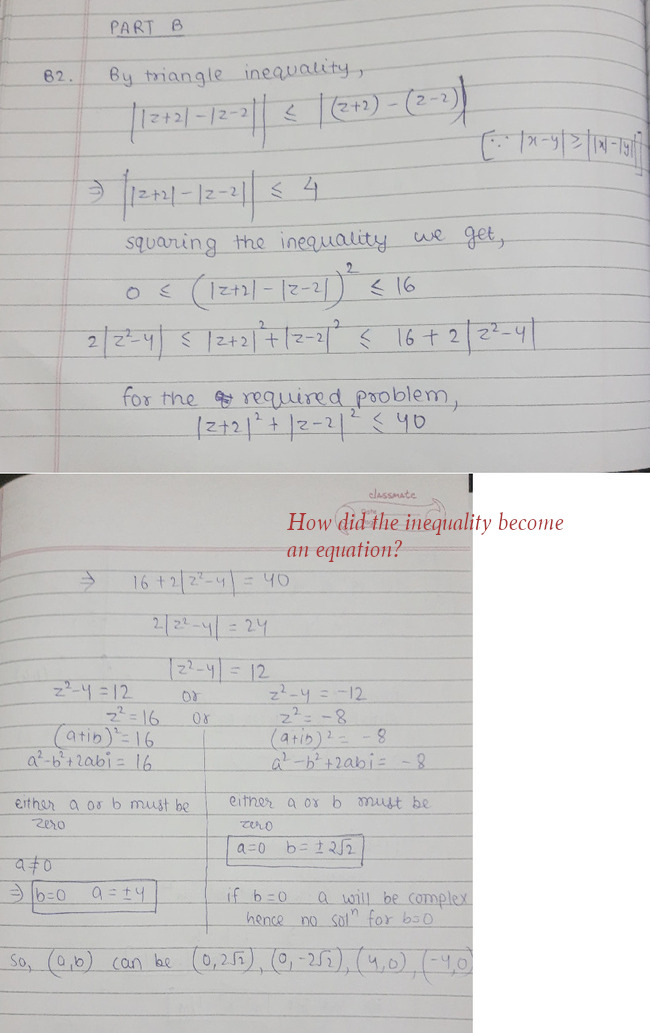 PART B
B2. By triangle inequality,
||z+2|-|z-2|| ≤ |(z+2) - (z-2)|
[∵ |x-y| ≥ ||x|-|y||]
⇒ ||z+2|-|z-2|| ≤ 4
squaring the inequality we get,
0 ≤ (|z+2|-|z-2|)² ≤ 16
2|z²-4| ≤ |z+2|²+|z-2|² ≤ 16 + 2|z²-4|
for the required problem,
|z+2|² + |z-2|² ≤ 40
classmate
How did the inequality become
an equation?
⇒ 16+2|z²-4| = 40
2|z²-4| = 24
|z²-4| = 12
z²-4 = 12 or z²-4 = -12
z² = 16 or z² = -8
(a+ib)² = 16 (a+ib)² = -8
a²-b²+2abi = 16 a²-b²+2abi = -8
either a or b must be zero
either a or b must be zero
a=0 b=±2√2
a≠0
⇒ b=0 a=±4
if b=0 a will be complex
hence no solⁿ for b=0
so, (a,b) can be (0,2√2), (0,-2√2), (4,0), (-4,0)